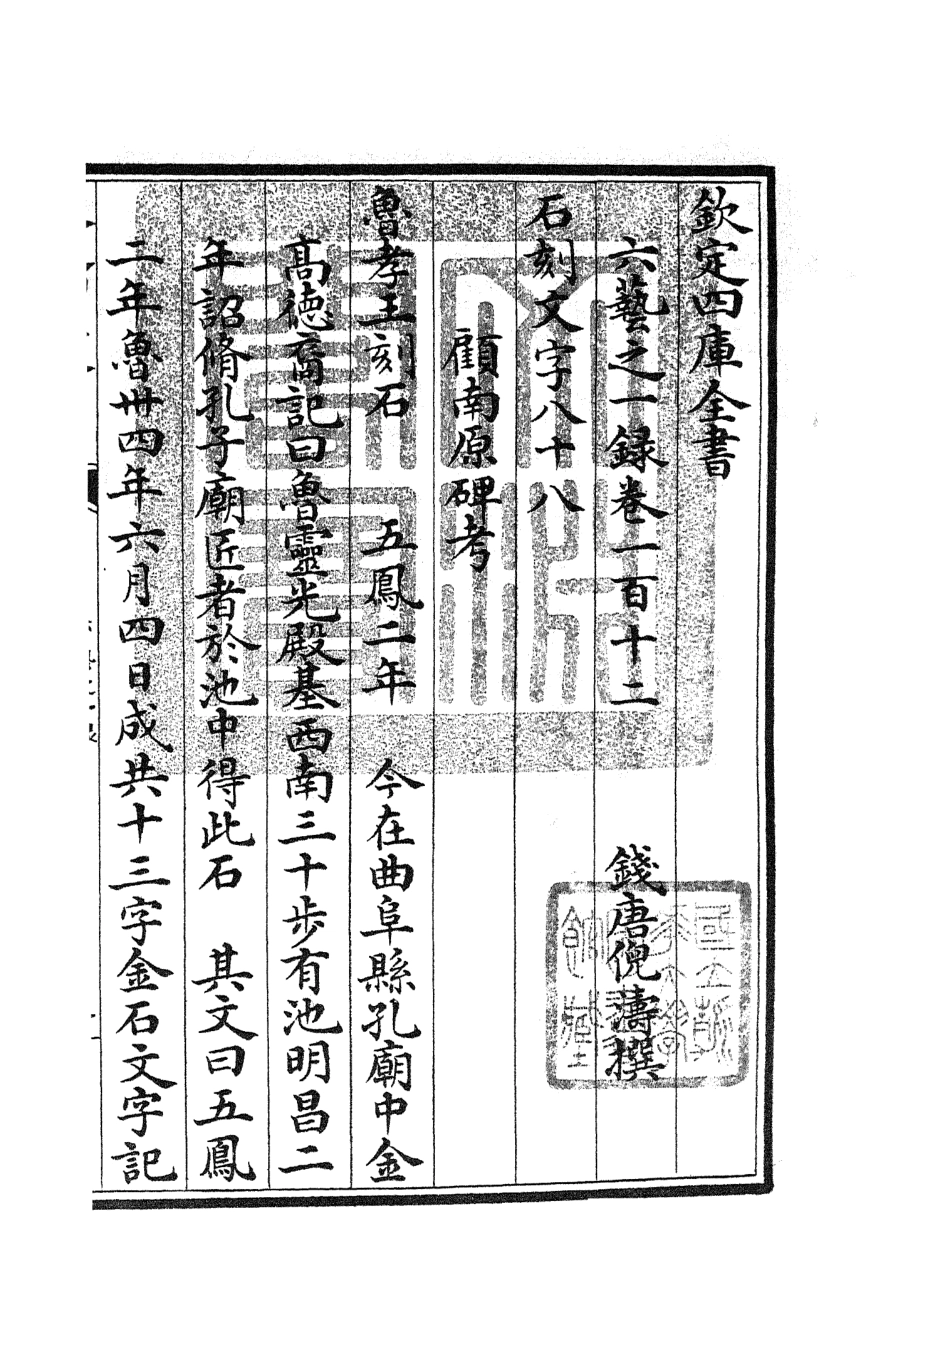 欽定四庫全書
六藝之一録卷一百十二
錢唐倪濤撰
石刻文字八十八
顧南原碑考
魯孝王刻石　五鳳二年　今在曲阜縣孔廟中金
高德裔記曰魯靈光殿基西南三十步有池明昌二
年詔脩孔子廟匠者於池中得此石　其文曰五鳳
二年魯丗四年六月四日成共十三字金石文字記